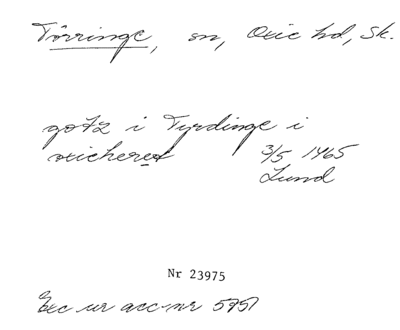 Törringe, sn, Oxie hd, Sk.
gotz i Tyrdinge i
oxieheret 3/5 1465
Lund
Nr 23975
Exc ur acc nr 5957